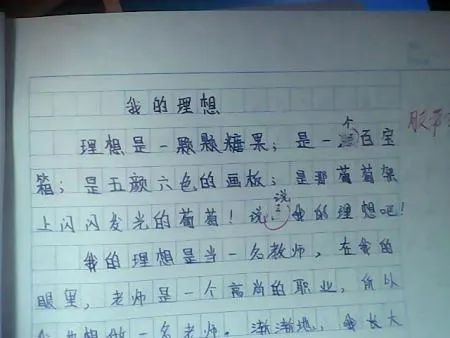 我的理想
理想是一颗颗糖果；是一个百宝
箱；是五颜六色的画板；是那葡萄架
上闪闪发光的葡萄！说说我的理想吧！
我的理想是当一名教师，在我的
眼里，老师是一个高尚的职业，所以
我也想做一名老师。渐渐地，我长大